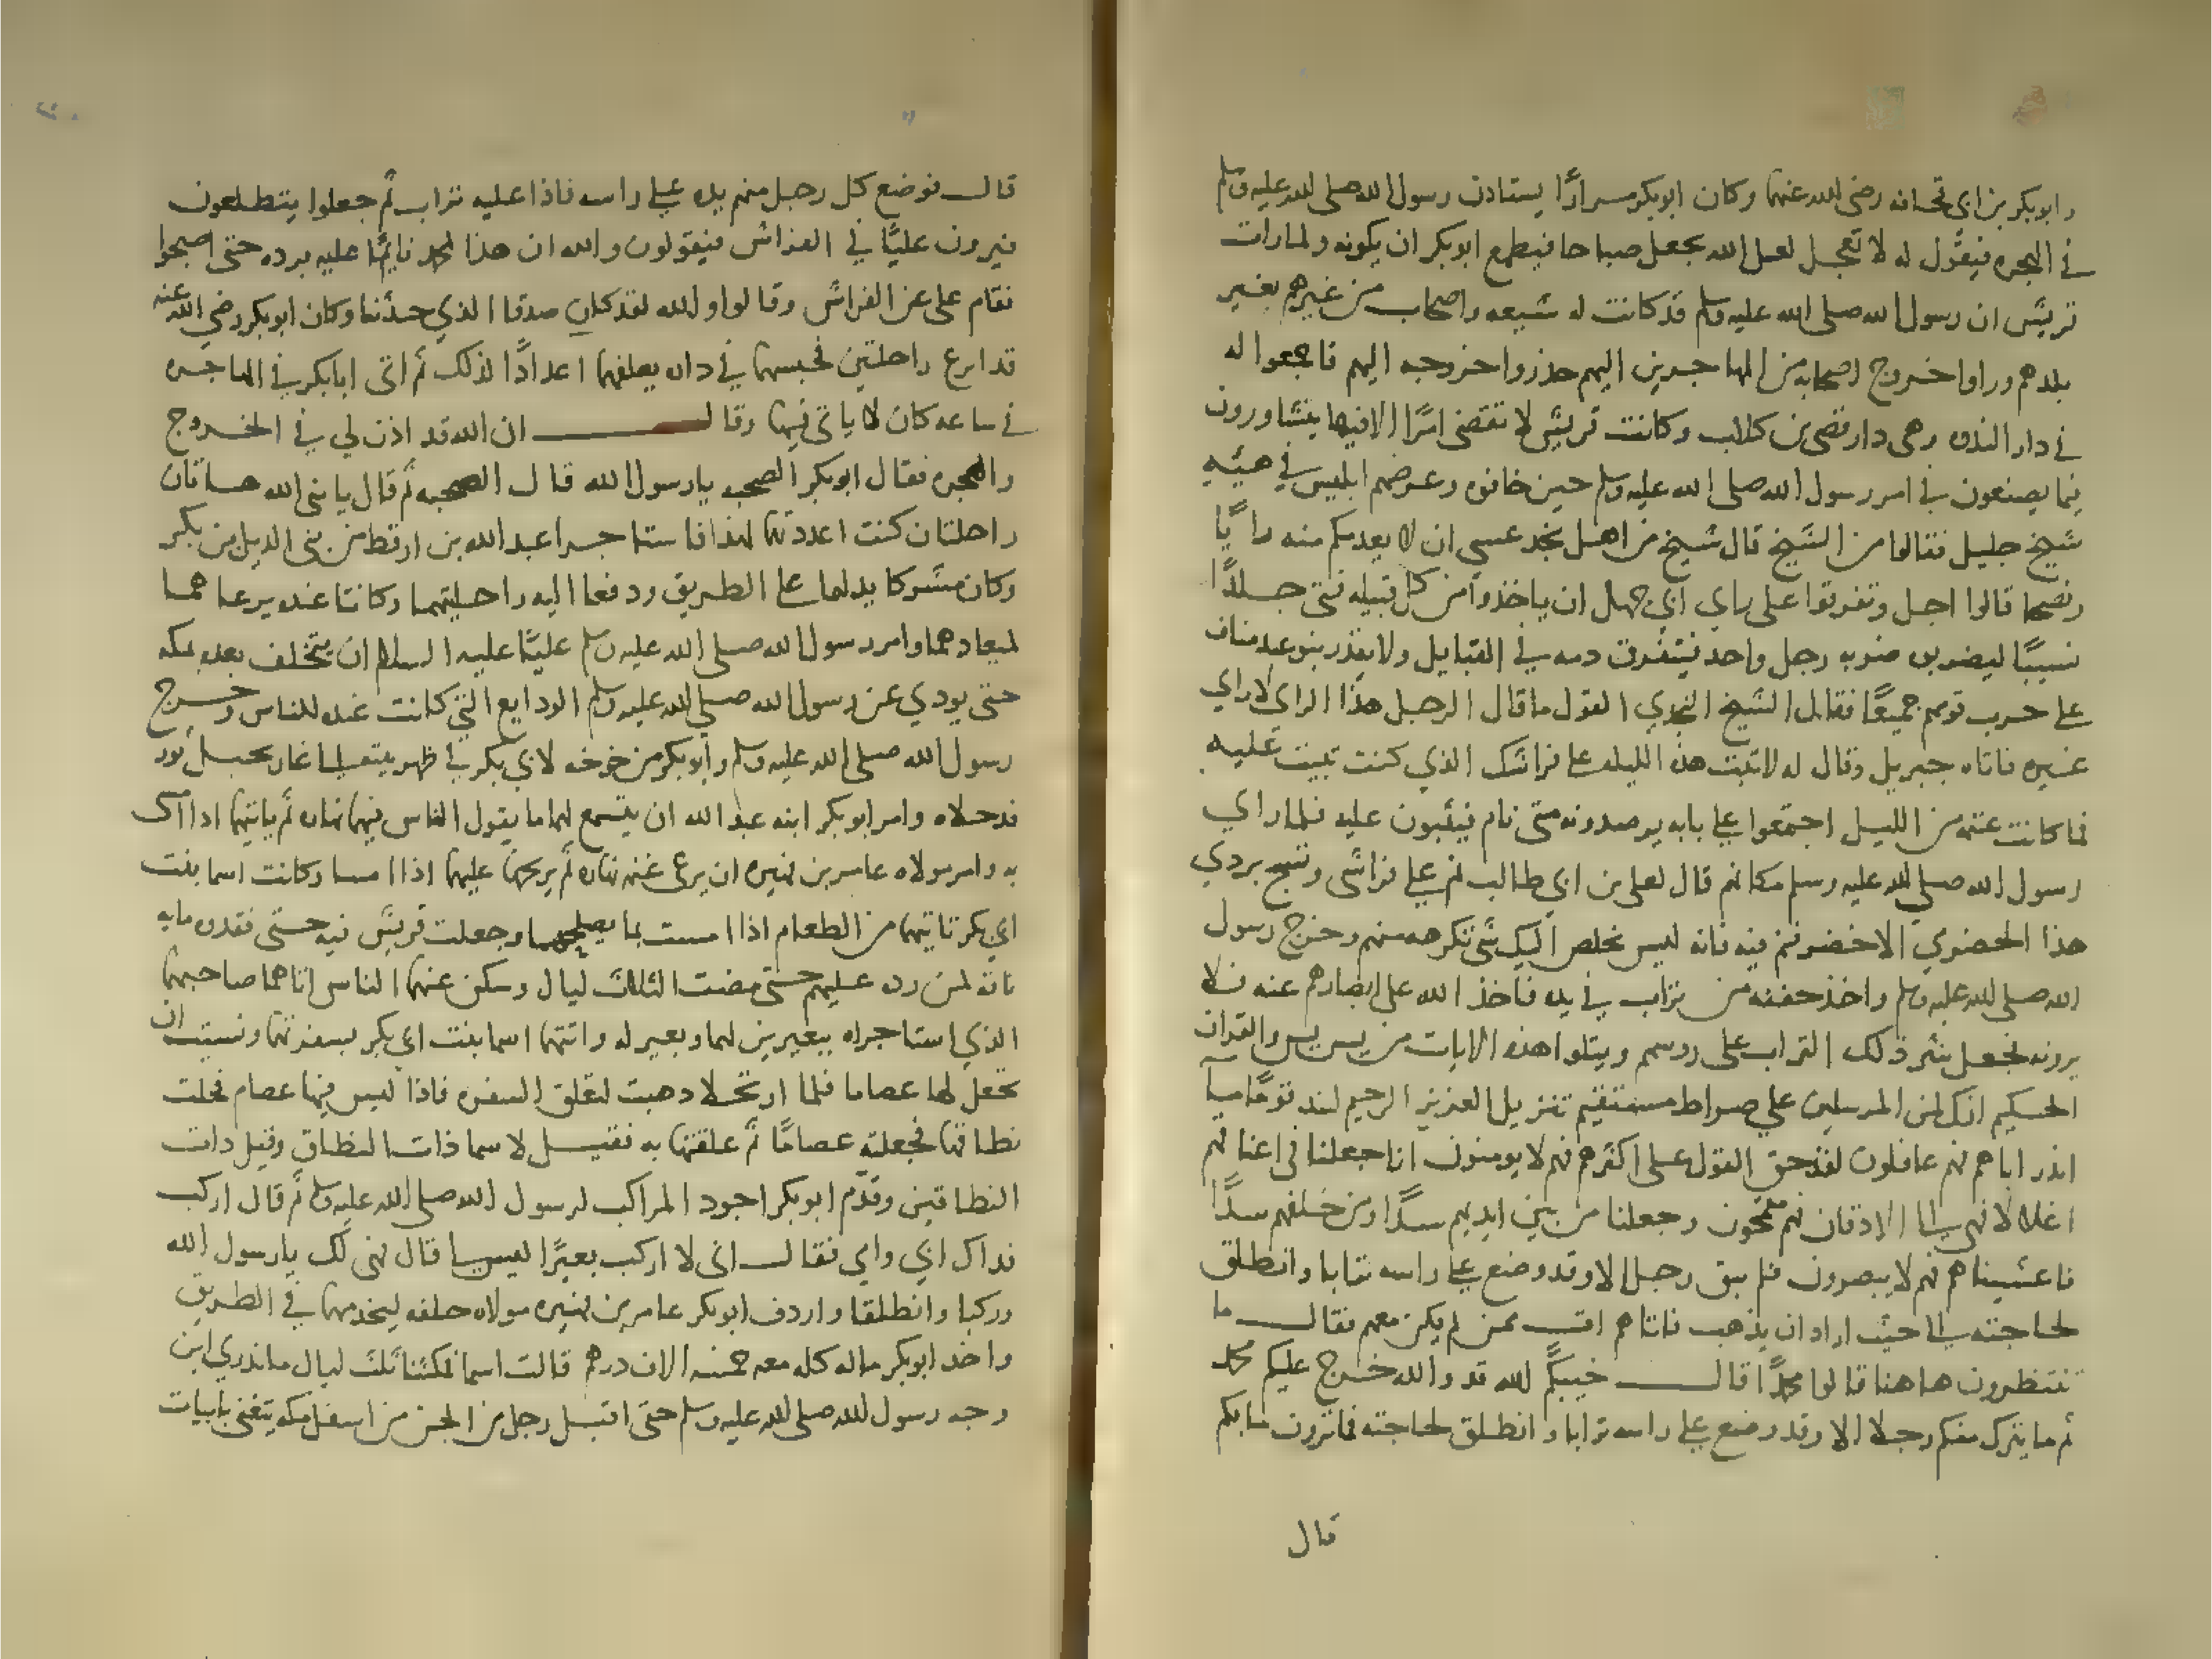 وابوبكر بن ابي قحافه رضي الله عنهما وكان ابوبكر مرارًا يستاذن رسول الله صلى الله عليه وسلم
في الهجره فيقول له لا تعجل لعل الله يجعل صباحا فيطمع ابوبكر ان يكونه ولما رات
قريش ان رسول الله صلى الله عليه وسلم قد كانت له شيعه واصحاب من غيرهم بغير
بلدهم وراوا خروج اصحابه من المهاجرين اليهم حذروا خروجه اليهم فاجمعوا له
في دار الندوه وهي دار قصي بن كلاب وكانت قريش لا تقضي امرًا الا فيها يتشاورون
فيما يصنعون في امر رسول الله صلى الله عليه وسلم حين خافوه وعرضهم ابليس في هيئه
شيخ جليل فقالوا من الشيخ قال شيخ من اهل نجد عسى ان لا يعدمكم منه رايًا
ونصحا قالوا اجل وتفرقوا على راي ابي جهل ان ياخذوا من كل قبيله فتى جلدًا
نسيبًا ليضربوه ضربه رجل واحد فيتفرق دمه في القبايل ولا يقدر بنو عبد مناف
على حرب قومهم جميعًا فقال الشيخ النجدي القول ما قال الرجل هذا الراي لا راي
غيره فاتاه جبريل وقال له لا تبت هذه الليله على فراشك الذي كنت تبيت عليه
فما كانت عتمه من الليل اجتمعوا على بابه يرصدونه متى نام فيثبون عليه فلما راي
رسول الله صلى الله عليه وسلم مكانهم قال لعلي بن ابي طالب نم على فراشى وتسج بردي
هذا الحضرمي الاخضر فنم فيه فانه ليس يخلص اليك شئ تكرهه منهم وخرج رسول
الله صلى الله عليه وسلم واخذ حفنه من تراب في يده فاخذ الله على ابصارهم عنه فلا
يرونه فجعل ينثر ذلك التراب على روسهم ويتلوا هذه الايات من يس يس والقران
الحكيم انك لمن المرسلين على صراط مستقيم تنزيل العزيز الرحيم لتنذر قومًا ما
انذر اباهم فهم غافلون لقد حق القول على اكثرهم فهم لا يومنون انا جعلنا في اعناقهم
اغلالا فهي الى الاذقان فهم مقمحون وجعلنا من بين ايديهم سدًا ومن خلفهم سدًا
فاغشيناهم فهم لا يبصرون فلم يبق رجل الا وقد وضع على راسه ترابا وانطلق
لحاجته الى حيث اراد ان يذهب فاتاهم ات ممن لم يكن معهم فقال ما
تنتظرون هاهنا قالوا محمدًا قال خيبكم الله قد والله خرج عليكم محمد
ثم ما يترك منكم رجلا الا وقد وضع على راسه ترابا وانطلق لحاجته فما ترون ما بكم
قال
قال فوضع كل رجل منهم يده على راسه فاذا عليه تراب ثم جعلوا يتطلعون
فيرون عليًا في الفراش فيقولون والله ان هذا لمحمد نايمًا عليه برده حتى اصبحوا
فقام على عن الفراش وقالوا والله لقد كان صدقا الذي حدثنا وكان ابوبكر رضي الله عنه
قد ابرع راحلتين فحبسهما في داره يعلفهما اعدادًا لذلك ثم اتى ابابكر في الهاجره
في ساعه كان لا ياتي فيها وقال ان الله قد اذن لي في الخروج
والهجره فقال ابوبكر الصحبه يا رسول الله قال الصحبه ثم قال يا نبى الله هاتان
راحلتان كنت اعددتهما لهذا فاستاجرا عبد الله بن ارقط من بنى الديل بن بكر
وكان مشركا يدلهما على الطريق ودفعا اليه راحلتيهما وكانتا عنده يرعاهما
لميعادهما وامر رسول الله صلى الله عليه وسلم عليًا عليه السلام ان يتخلف بعده بمكه
حتى يودي عن رسول الله صلى الله عليه وسلم الودايع التي كانت عنده للناس وخرج
رسول الله صلى الله عليه وسلم وابوبكر من خوخه لابي بكر في ظهر بيته الى غار بجبل ثور
فدخلاه وامر ابوبكر ابنه عبد الله ان يتسمع لهما ما يقول الناس فيهما نهاره ثم ياتيهما اذا امسى
به وامر مولاه عامر بن فهيره ان يرعى غنمه نهاره ثم يريحها عليهما اذا امسا وكانت اسما بنت
ابي بكر تاتيهما من الطعام اذا امست بما يصلحهما وجعلت قريش فيه حتى فقدوه مايه
ناقه لمن رده عليهم حتى مضت الثلاث ليال وسكن عنهما الناس اتاهما صاحبهما
الذي استاجراه ببعيرين لهما وبعير له واتتهما اسما بنت ابي بكر بسفرتهما ونسيت ان
تجعل لها عصاما فلما ارتحلا ذهبت لتعلق السفره فاذا ليس فيها عصام فحلت
نطاقها فجعلته عصامًا ثم علقتها به فقيل لاسما ذات النطاق وقيل ذات
النطاقين وقدّم ابوبكر اجود المراكب لرسول الله صلى الله عليه وسلم ثم قال اركب
فداك ابي وامي فقال انى لا اركب بعيرًا ليس لي قال فهى لك يا رسول الله
وركبا وانطلقا واردف ابوبكر عامر بن فهيره مولاه خلفه ليخدمهما في الطريق
واخذ ابوبكر ماله كله معه خمسه الاف درهم قالت اسما فمكثنا ثلث ليال ما ندري اين
وجه رسول الله صلى الله عليه وسلم حتى اقبل رجل من الجن من اسفل مكه يتغنى بابيات